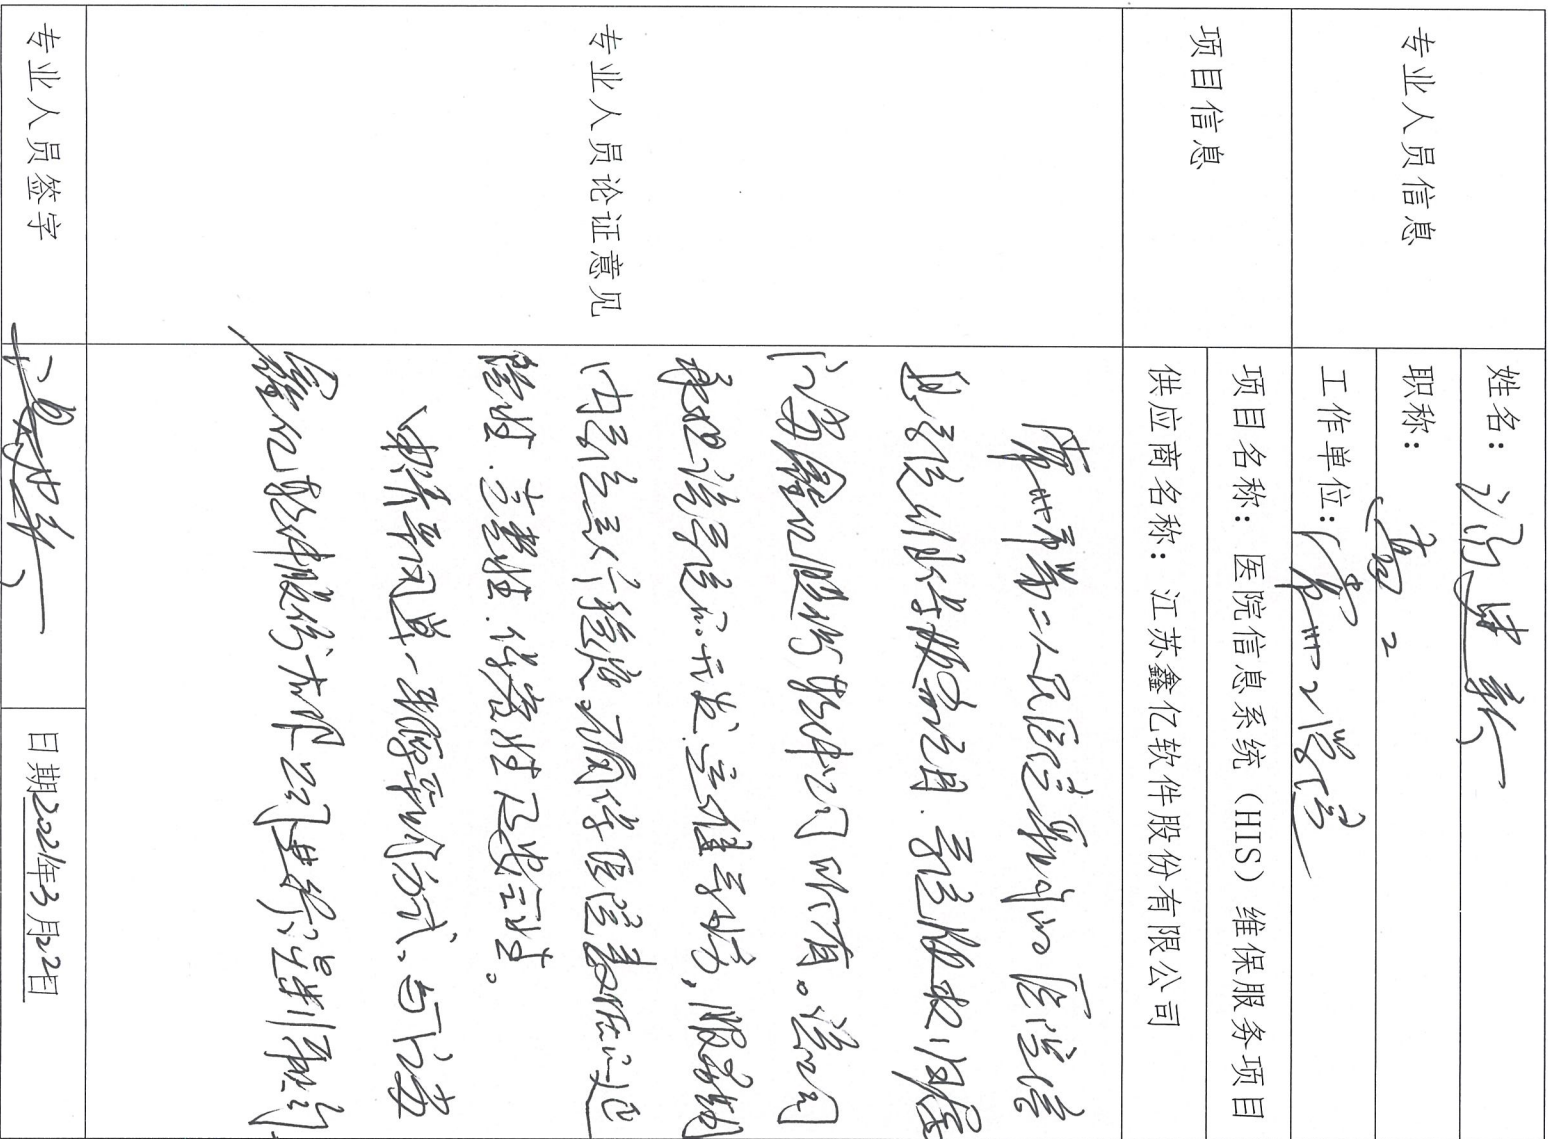 专业人员信息
姓名：
职称：高工
工作单位：常州二院
项目信息
项目名称：医院信息系统（HIS）维保服务项目
供应商名称：江苏鑫亿软件股份有限公司
专业人员论证意见
常州市第二人民医院采购的医院信
息系统维保服务项目.系统版权归属
江苏鑫亿股份软件公司所有。该公司
承担该系统的开发、运维等任务，服务期
内系统运行稳定。确保医院数据的延
续性.完整性.保密性及安全性。
申请采用单一来源采购方式、与江苏
鑫亿软件股份有限公司进行
专业人员签字
日期2022年3月22日